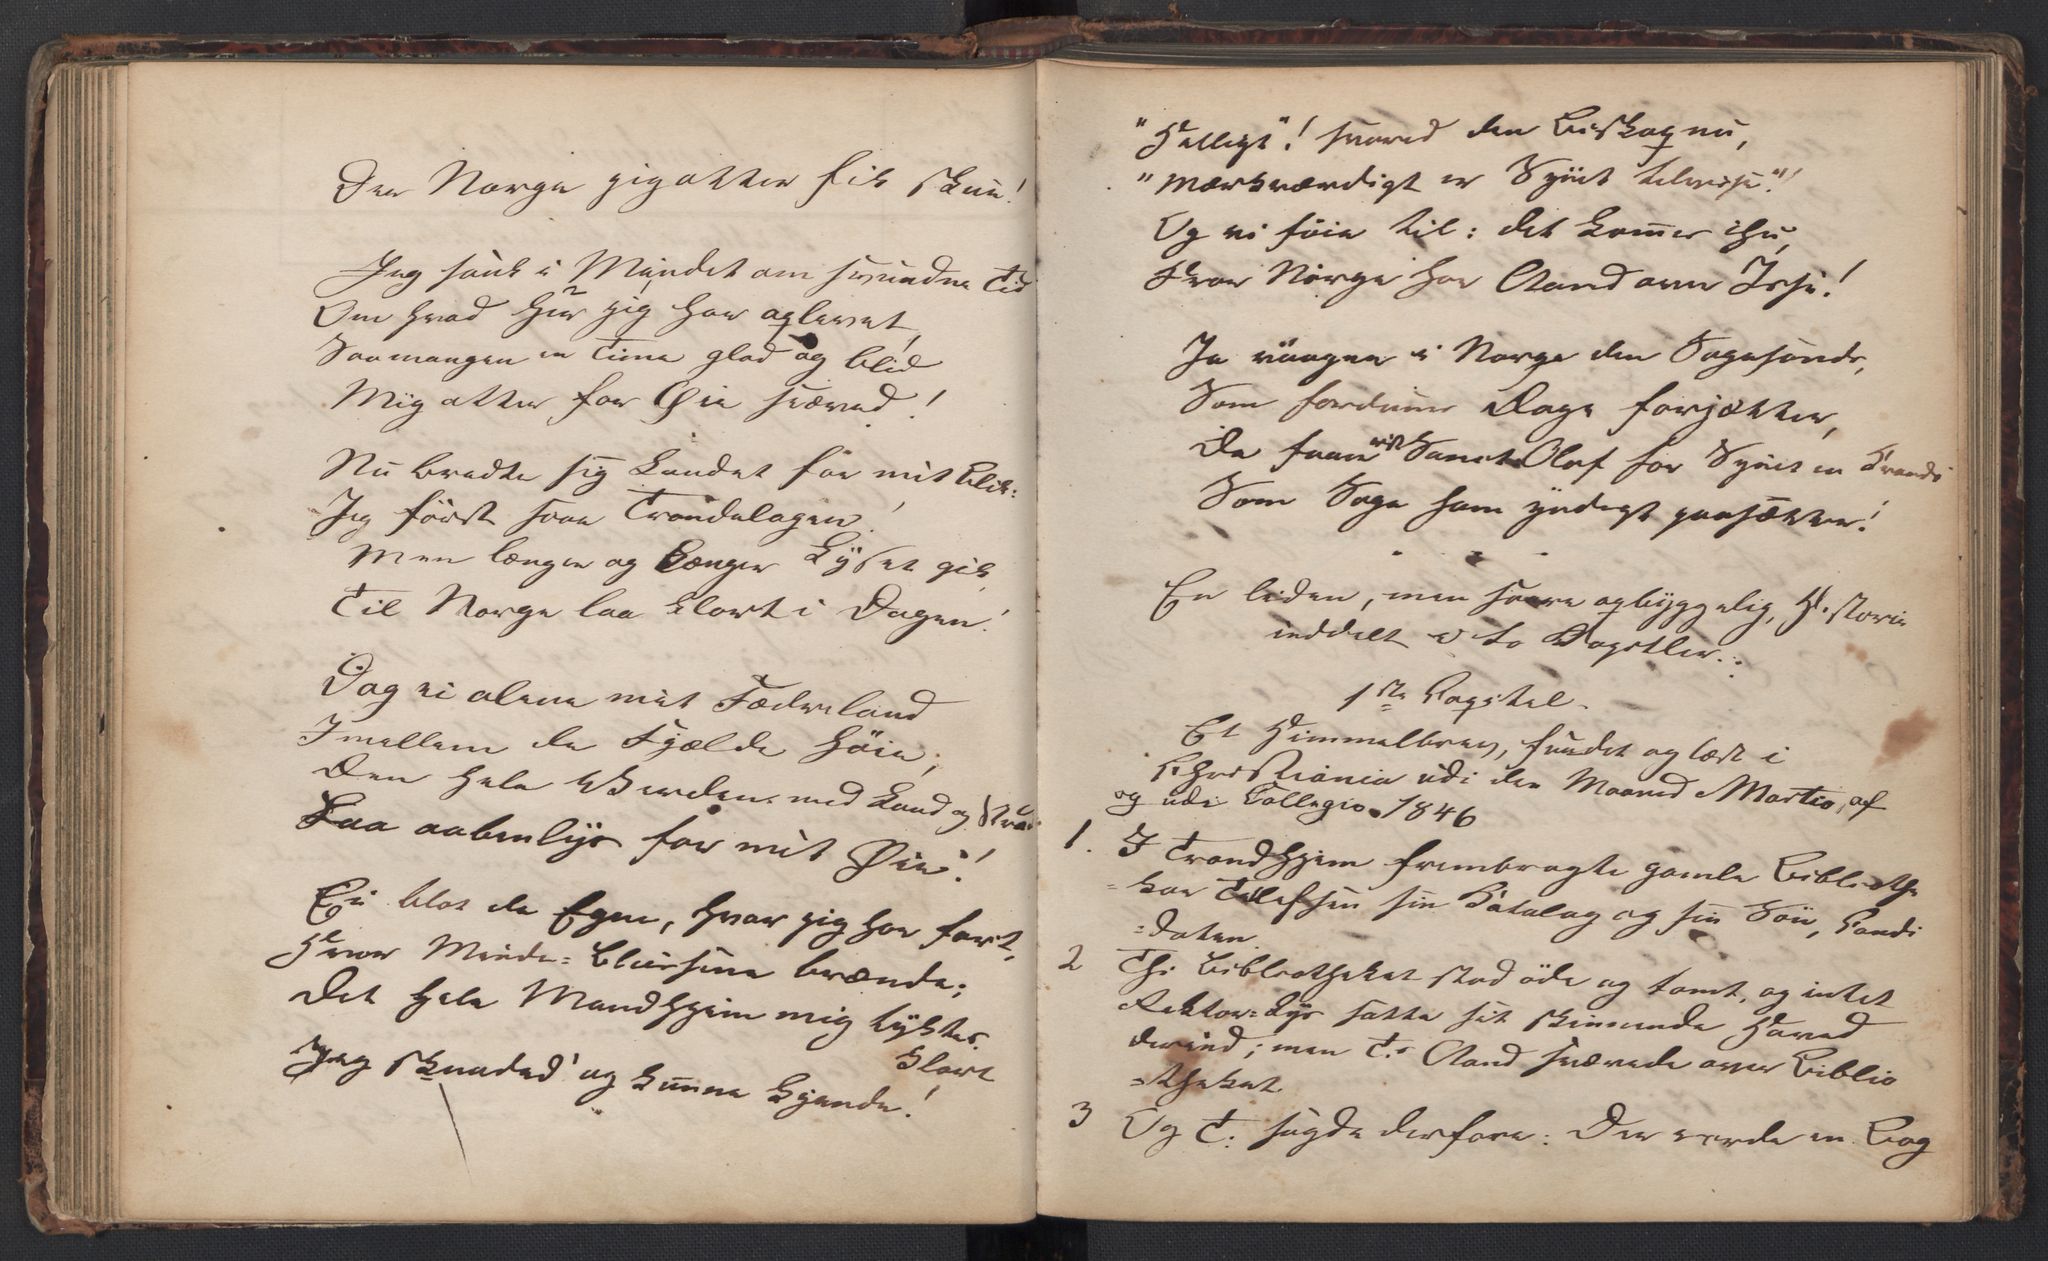 Der Norge jeg atter fik skue!
Jeg sank i Mindet om svundne Tid
Om hvad her jeg har oplevet,
Saamangen en Time glad og blid
Mig atter for Øie svæved!
Nu bredte sig Landet for mit Blik:
Jeg først saae Trondelagen!
Men længer og længer Lyset gik
Til Norge laa klart i Dagen!
Dog ei alene mit Fædreland
Imellem de Fjelde høie,
Den hele Verden med Land og Strand
Laa aabenlys for mit Øie!
Ei blot de Egne, hvor jeg har fært,
Hvor Minde-Blussene brænde;
Det hele Mandhjem mig tyktes
klart
Jeg skuaded' og kunne kjende!
"Herligt"! svared den Biskop nu,
"Mærkværdigt er Synet tilvisse"!
Og vi föie til: det kommer ihu,
Thor Norge har Aand over Isse!
Ja vaagner i Norge den Sagasands,
Som fordums Dage forjætter,
Da faaer vist Sanct Olaf for Synet en Krands
Som Saga ham yndigt paasætter!
En liden, men saare opbyggelig, Historie
inddelt i to Kapitler.
1ste Kapitel.
Et Himmelbrev, fundet og læst i
Christiania udi den Maaned Martio, af
og udi Collegio 1846
1. I Trondhjem frembragte gamle Bibliothe
=kar Tellefsen sin Katalog og sin Søn, Kandi
=daten.
2 Thi Bibliotheket stod øde og tomt, og intet
Rektor-Lys satte sit skinnende Hoved
derind; men T.s Aand svævede over Biblio
=theket
3 Og T. sagde derfore: Der vorde en Bog